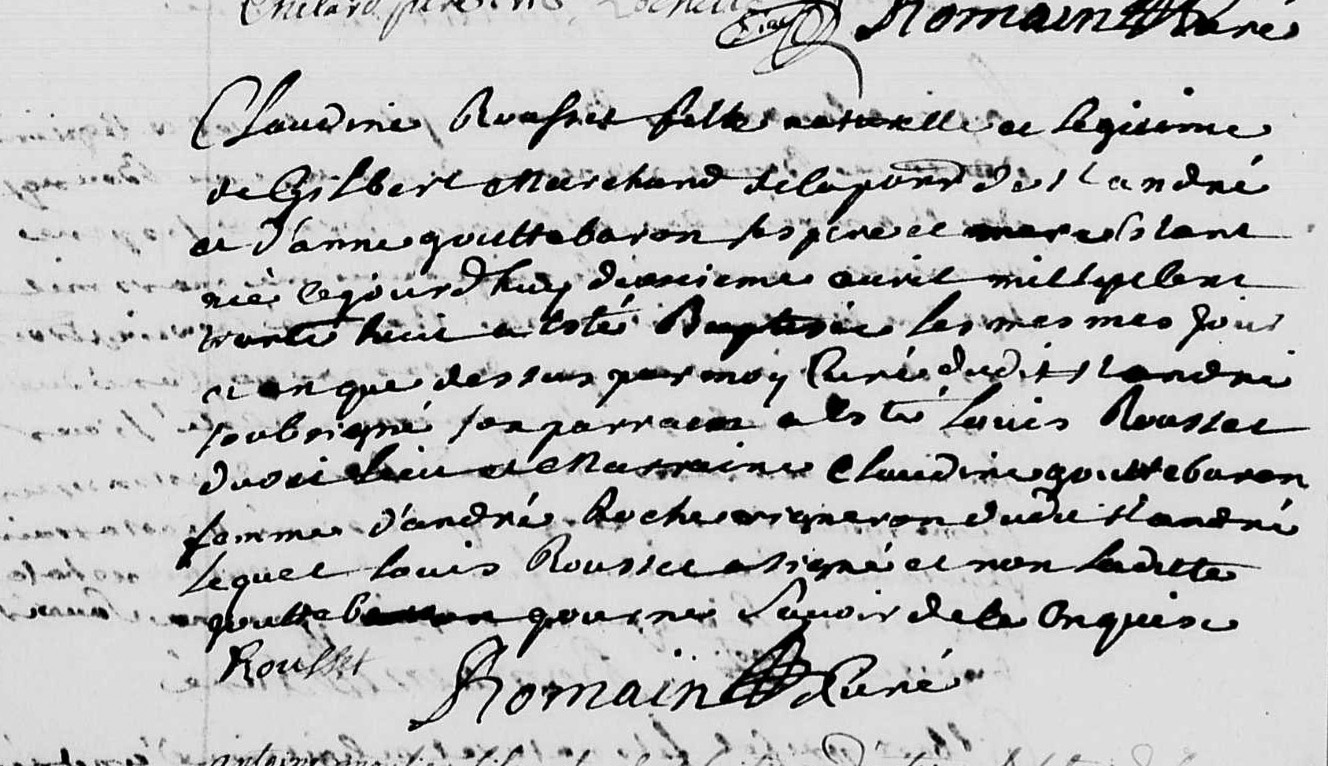 Romain Curé
Claudine Rousset fille naturelle et legitime
de Gilbert Marchand de la parr de st andré
et d'anne gouttebaron ses pere et mere Estant
née cejourd'huy deuxieme avril mil sept cent
trente huit a esté Baptisée les mesmes jour
et an que dessus par moy Curé dudit st andré
soubsigné son parrain a Esté Louis Rousset
dudit lieu et Marraine Claudine gouttebaron
femme d'andré Roche vigneron dudit st andré
lequel Louis Rousset a signé et non laditte
gouttebaron pour ne sçavoir de ce Enquise
Rousset Romain Curé